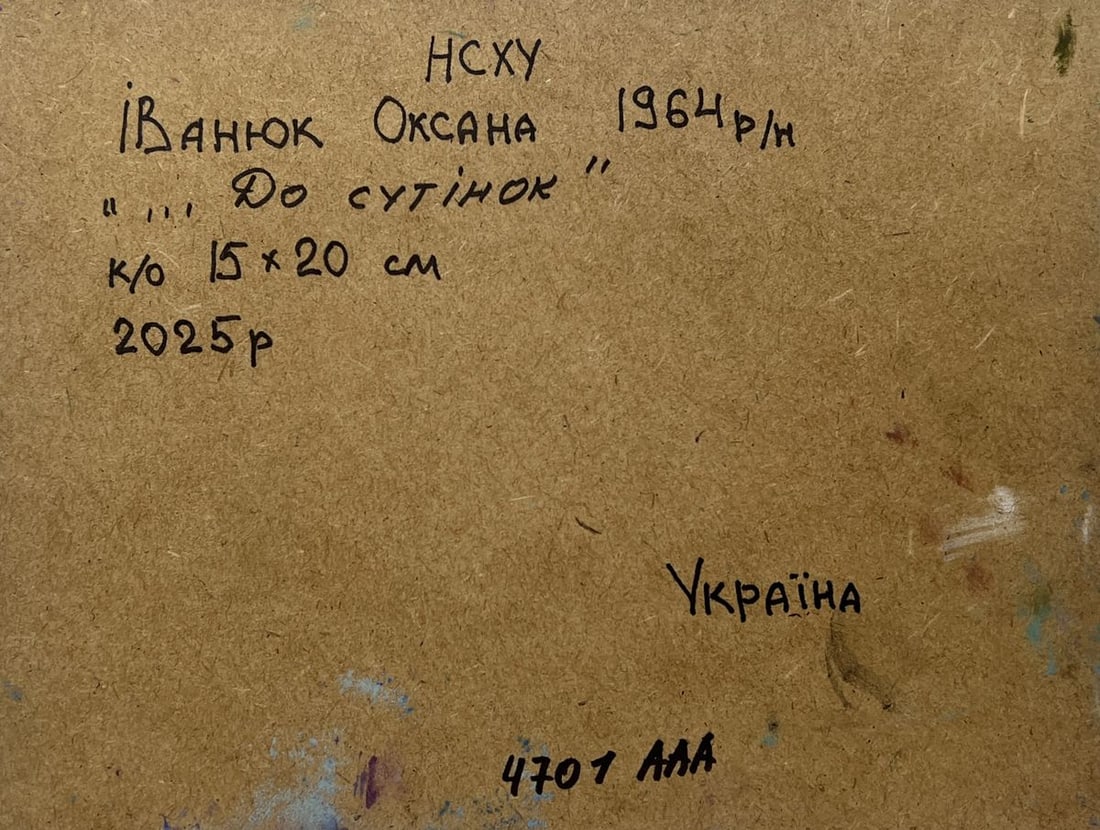 НСХУ
ІВАНЮК ОКСАНА 1964 р/н
"... До сутінок"
к/о 15 × 20 см
2025р
УКРАЇНА
4701 ААА